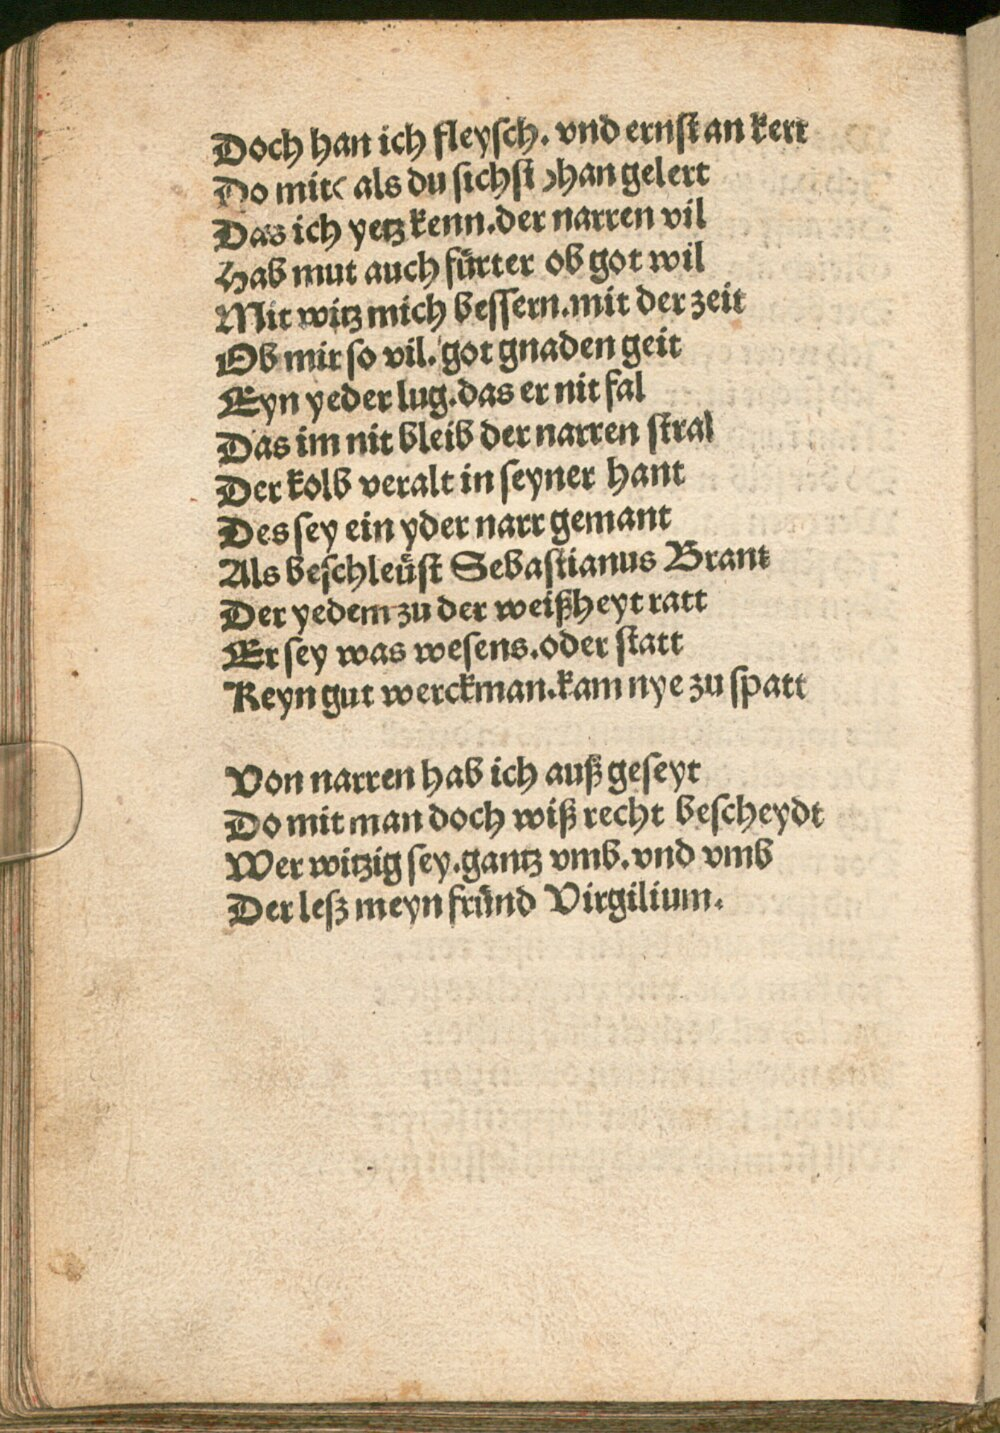 Doch han ich fleysch. vnd ernst an kert
Do mit( als du sichst )han gelert
Das ich yetz kenn.der narren vil
Hab mut auch fürter ob got wil
Mit witz mich bessern.mit der zeit
Ob mir so vil. got gnaden geit
Eyn yeder lug.das er nit fal
Das im nit bleib der narren stral
Der kolb veralt in seyner hant
Des sey ein yder narr gemant
Als beschleüst Sebastianus Brant
Der yedem zu der weißheyt ratt
Er sey was wesens.oder statt
Keyn gut werckman.kam nye zu spatt

Von narren hab ich auß geseyt
Do mit man doch wiß recht bescheydt
Wer witzig sey.gantz vmb.vnd vmb
Der lesz meyn fründ Virgilium.